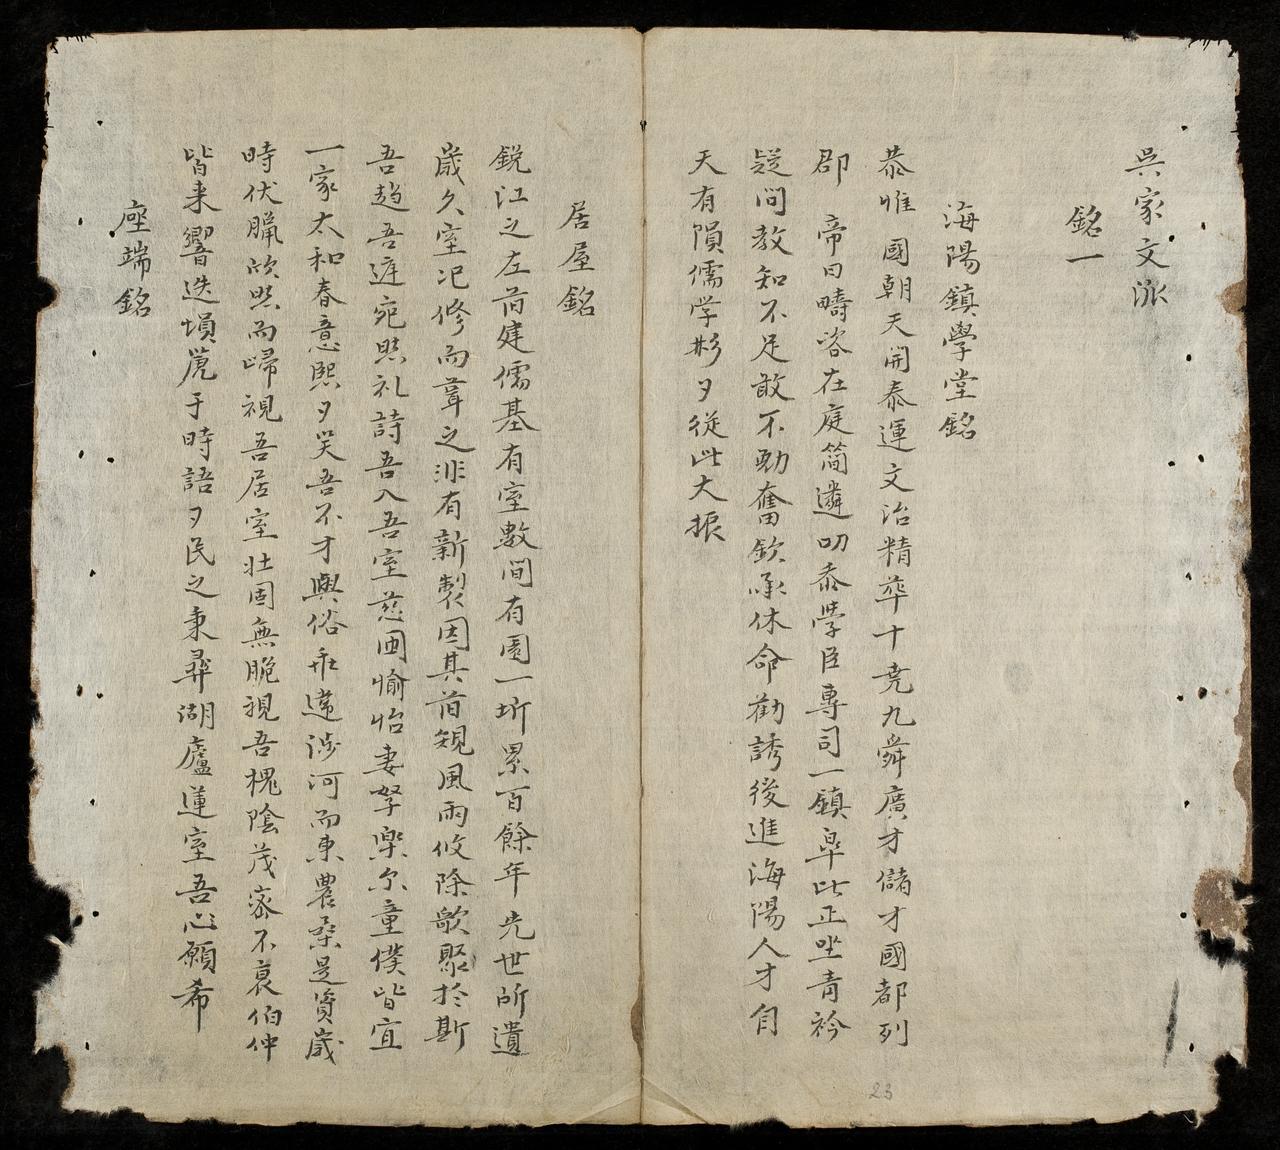 吳家文派
銘一
海陽鎮學堂銘
恭惟國朝天開泰運文治精華十堯九舜廣才儲才國都列
郡　帝曰疇咨在庭簡遴叨忝學臣專司一鎮臯比正坐青衿
疑問教知不足敢不勵奮欽承休命勸誘後進海陽人才自
天有隕儒学彬夕從此大振
居屋銘
銳江之左前建儒基有室數间有園一圻累百餘年先世所遺
歲久室圮修而葺之非有新製因其前䂓風雨攸除歌聚於斯
吾趋吾庭宛然礼詩吾入吾室慈囬愉怡妻孥樂尔童僕皆宜
一家太和春意熙夕笑吾不才與俗乖違涉河而東農桑是資歲
時伏臘欣然而歸視吾居室壯固無脆視吾槐陰茂密不衰伯仲
皆来響迭塤箎于時語夕民之秉彛湖廬蓮室吾心願希
座端銘
23